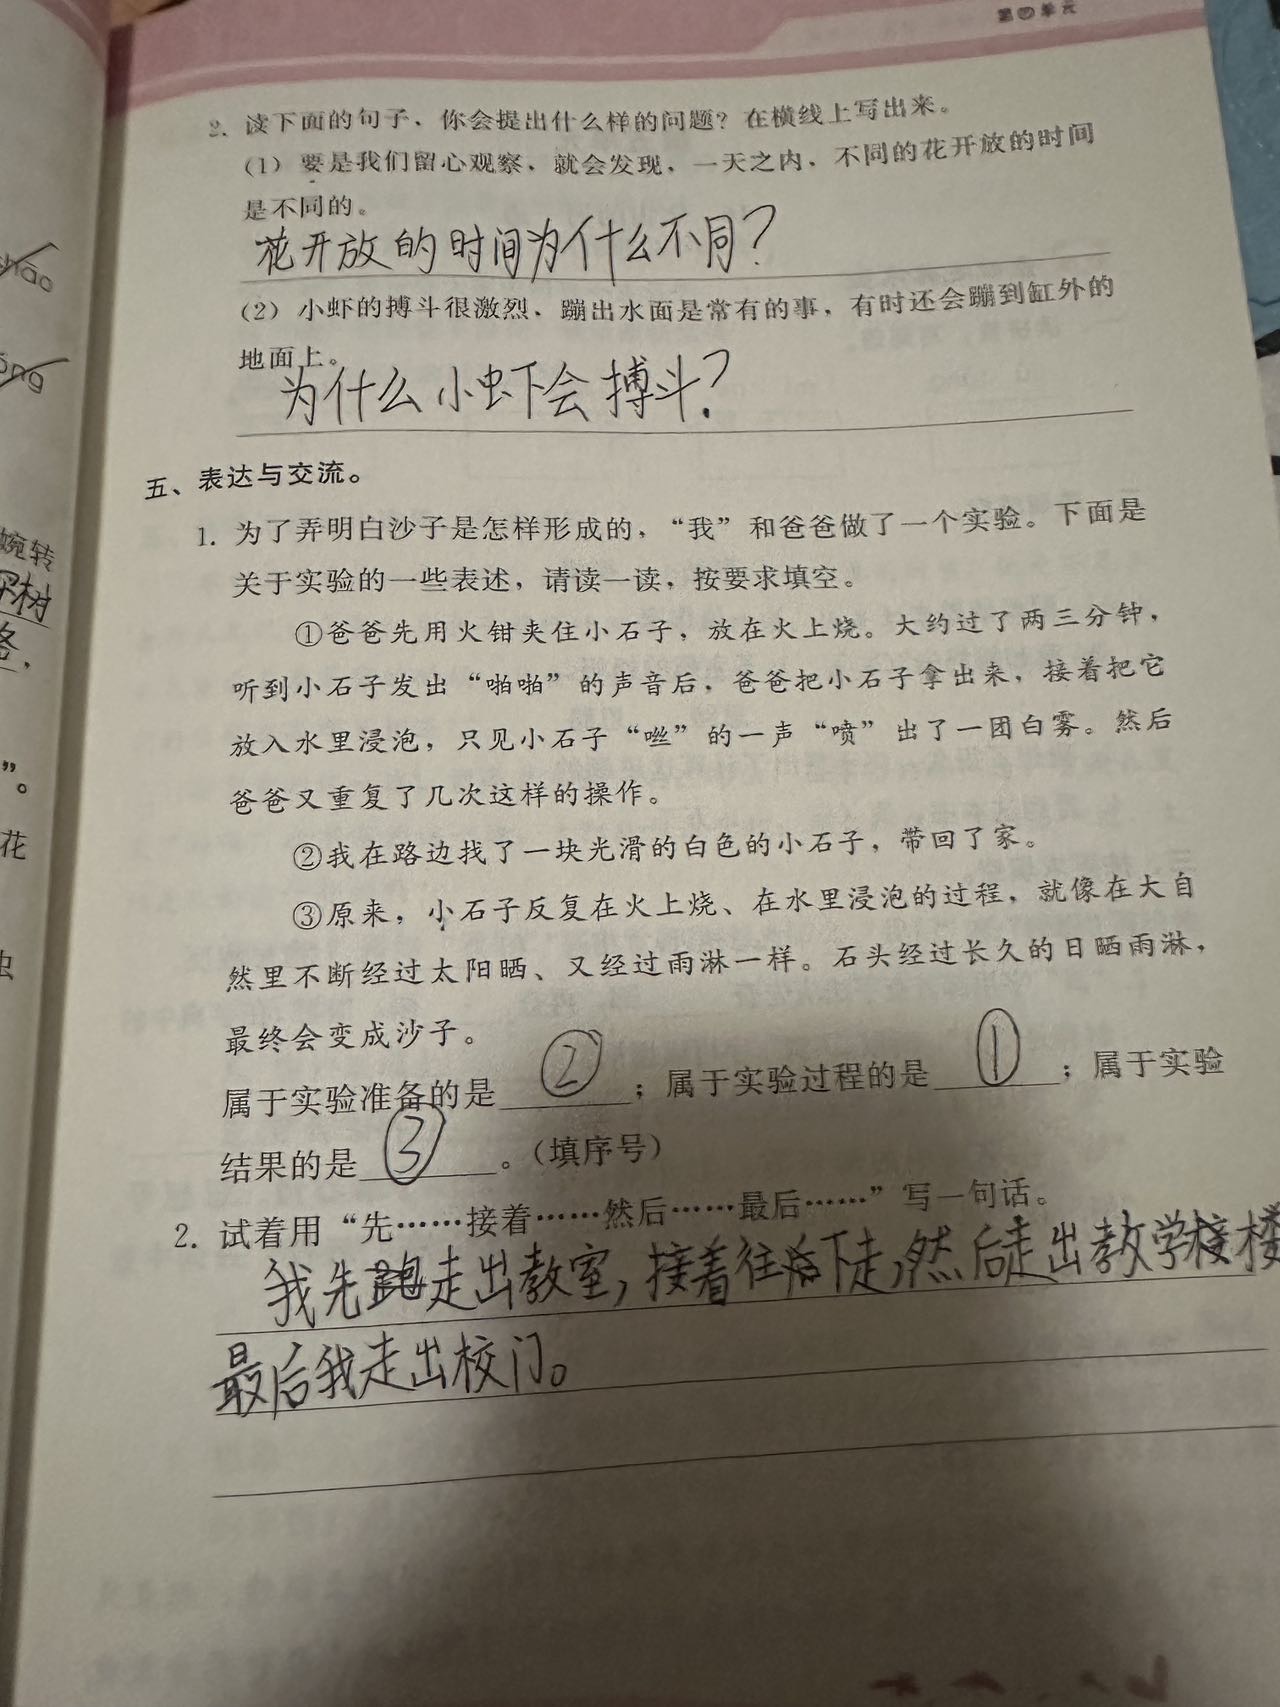 第四单元
2. 读下面的句子，你会提出什么样的问题？在横线上写出来。
（1）要是我们留心观察，就会发现，一天之内，不同的花开放的时间
是不同的。
花开放的时间为什么不同？
（2）小虾的搏斗很激烈，蹦出水面是常有的事，有时还会蹦到缸外的
地面上。
为什么小虾会搏斗？
五、表达与交流。
1. 为了弄明白沙子是怎样形成的，“我”和爸爸做了一个实验。下面是
关于实验的一些表述，请读一读，按要求填空。
①爸爸先用火钳夹住小石子，放在火上烧。大约过了两三分钟，
听到小石子发出“啪啪”的声音后，爸爸把小石子拿出来，接着把它
放入水里浸泡，只见小石子“咝”的一声“喷”出了一团白雾。然后
爸爸又重复了几次这样的操作。
②我在路边找了一块光滑的白色的小石子，带回了家。
③原来，小石子反复在火上烧、在水里浸泡的过程，就像在大自
然里不断经过太阳晒、又经过雨淋一样。石头经过长久的日晒雨淋，
最终会变成沙子。
属于实验准备的是②；属于实验过程的是①；属于实验
结果的是③。（填序号）
2. 试着用“先……接着……然后……最后……”写一句话。
我先走出教室，接着往下走，然后走出教学楼
最后我走出校门。
hāo
ōng
婉转
树
”。
花